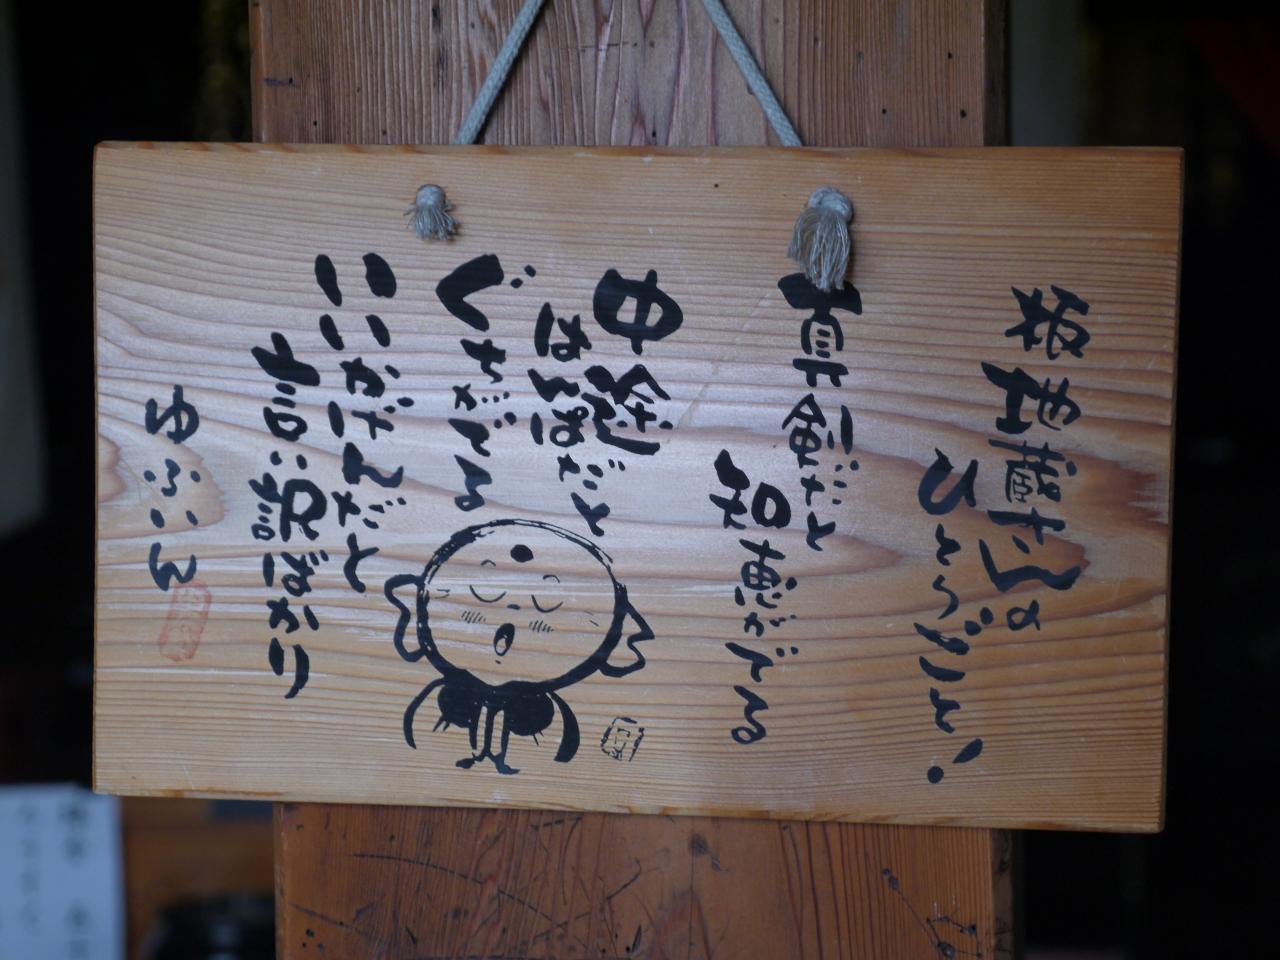 お地蔵さんの
ひとりごと!
真剣だと
知恵がでる
中途
はんぱだと
ぐちがでる
いいかげんだと
言い訳ばかり